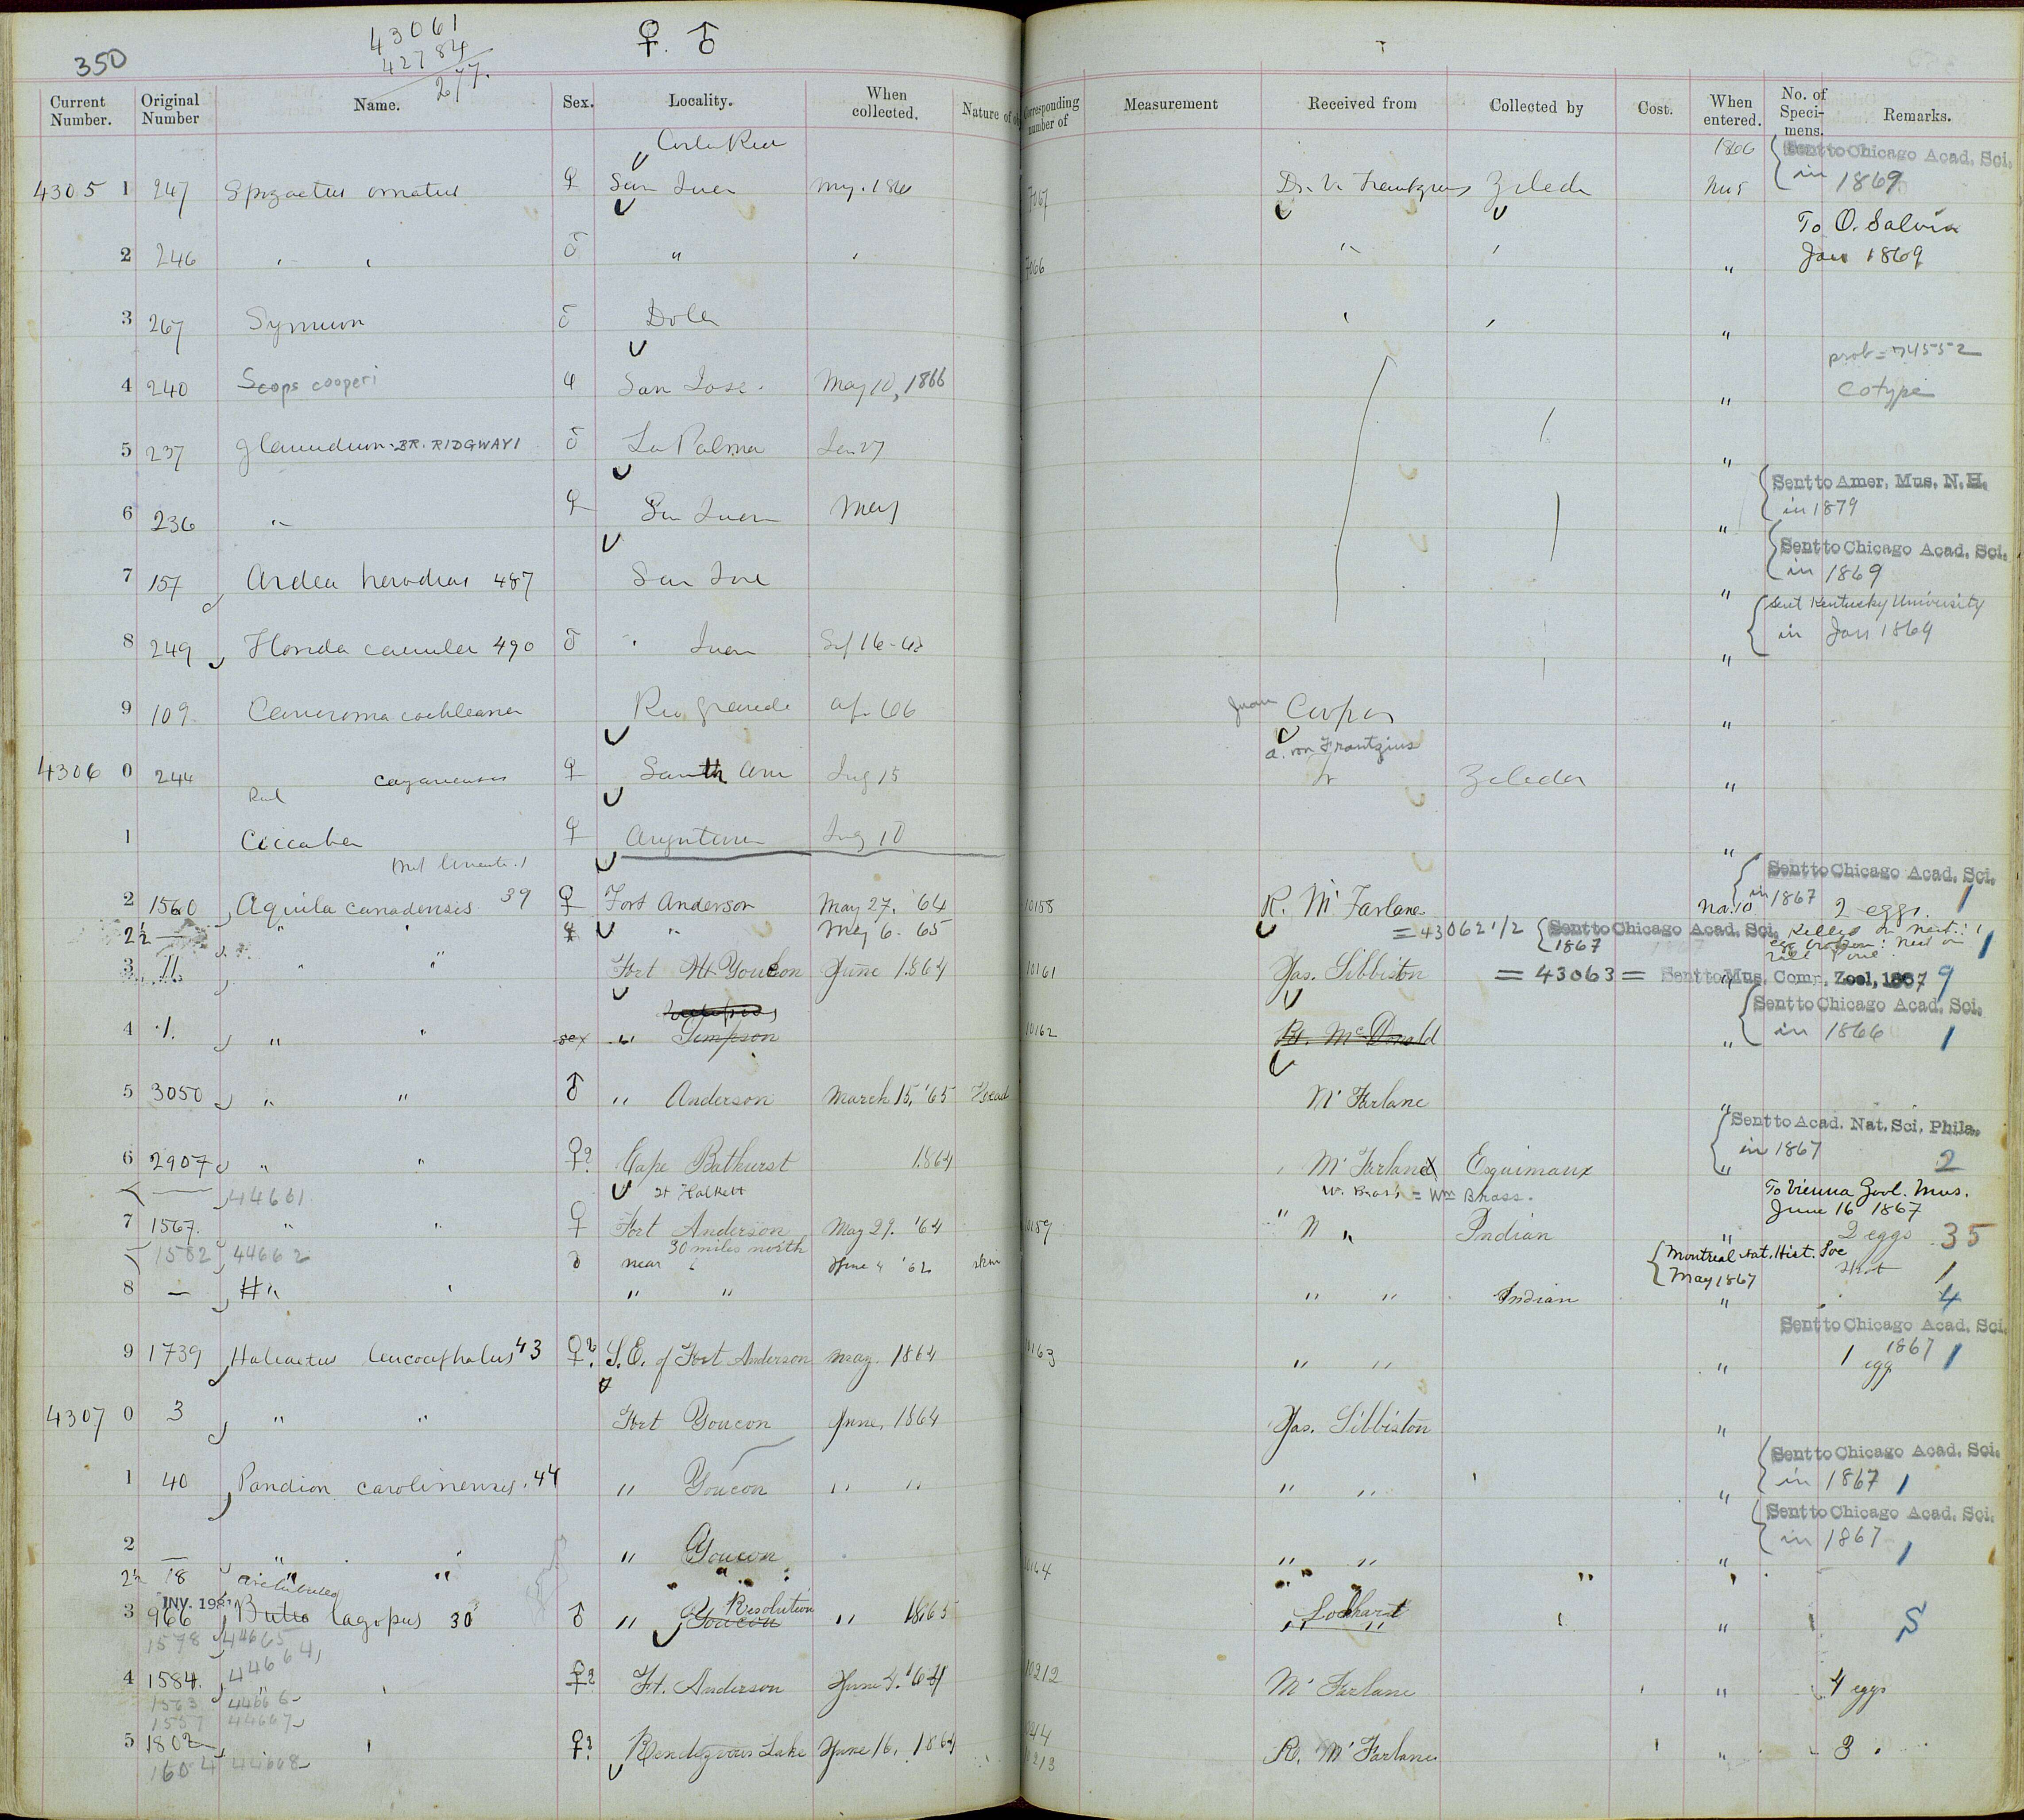 350
43061
42784
277.
♀. ♂
Current Number. Original Number Name. Sex. Locality. When collected. Nature of Corresponding number of Measurement Received from Collected by Cost. When entered. No. of Specimens. Remarks.
Costa Rica 1866 Sent to Chicago Acad. Sci.
4305 1 247 Spizaetus ornatus ♀ San Juan 7067 Dr. V. Frantzius Zeledon Nov 5 in 1869
To O. Salvin
2 246 " " ♂ " " 7066 " " " Jan 1869
3 267 Syrnium ♂ Dota " " "
prob = 74552
4 240 Scops cooperi ♀ San Jose. May 10, 1866 " Cotype
5 237 Glaucidium. BR. RIDGWAYI ♂ La Palma Jan 27 "
Sent to Amer. Mus. N. H.
6 236 " ♀ San Juan May " in 1879
Sent to Chicago Acad. Sci.
7 157 Ardea herodias 487 San Jose " in 1869
Sent Kentucky University
8 249 Florida caerulea 490 ♂ " Juan " in Jan 1869
9 109. Cancroma cochlearia Rio Grande Ap. 66 Juan Cooper "
a. von Frantzius
4306 0 244 cayanensis ♀ Santa Ana 15 Zeledon "
1 Ciccaba ♀ 10 "
Sent to Chicago Acad. Sci.
2 1560 Aquila canadensis 39 ♀ Fort Anderson May 27. '64 10158 R. McFarlane Nov. 10 in 1867 2 eggs. 1
2½ — " " ♀ " May 6. 65 = 43062 1/2 Sent to Chicago Acad. Sci. 1867 Killed on nest: 1 egg broken: nest on tall Pine. 1
3 11. " " Fort Youcon June 1864 10161 Jas. Sibbiston = 43063 = Sent to Mus. Comp. Zool, 1867 9
Sent to Chicago Acad. Sci.
4 1. " " sex " Simpson 10162 R. McDonald " in 1866 1
5 3050 " " ♂ " Anderson March 15, '65 Head McFarlane "
Sent to Acad. Nat. Sci. Phila.
in 1867
6 2907 " " ♀? Cape Bathurst 1864 McFarlane Esquimaux " 2
— 44661 Ft Halkett W. Brass = Wm Brass. To Vienna Zool. Mus.
June 16 1867
7 1567. " " ♀ Fort Anderson May 29. '64 10159 " " " Indian " 2 eggs 35
1582 44662 ♂ near 30 miles north June 4 '62 skin Montreal Nat. Hist. Soc
May 1867 1
8 — " " " " " " Indian " 4
Sent to Chicago Acad. Sci.
1867
9 1739 Haliaetus leucocephalus 43 ♀? S.E. of Fort Anderson May. 1864 10163 " " " 1 egg 1
4307 0 3 " " Fort Youcon June, 1864 Jas. Sibbiston "
Sent to Chicago Acad. Sci.
1 40 Pandion carolinensis. 44 " Youcon " " " " " in 1867 1
Sent to Chicago Acad. Sci.
2 — " " " Youcon " " " in 1867 1
2½ 18 " " " " 10164 " " "
INV. 198
3 966 Archibuteo Buteo lagopus 30 ♂ " Youcon Resolution " 1865 Lockhart " 5
1578 44665
44664
4 1584. " " ♀? Ft. Anderson June 4. '64 10212 McFarlane " 4 eggs
1563 44666
1557 44667
5 1802 " ♀? Rendezvous Lake June 16, 1864 R. McFarlane " 3 "
1604 44668 10213